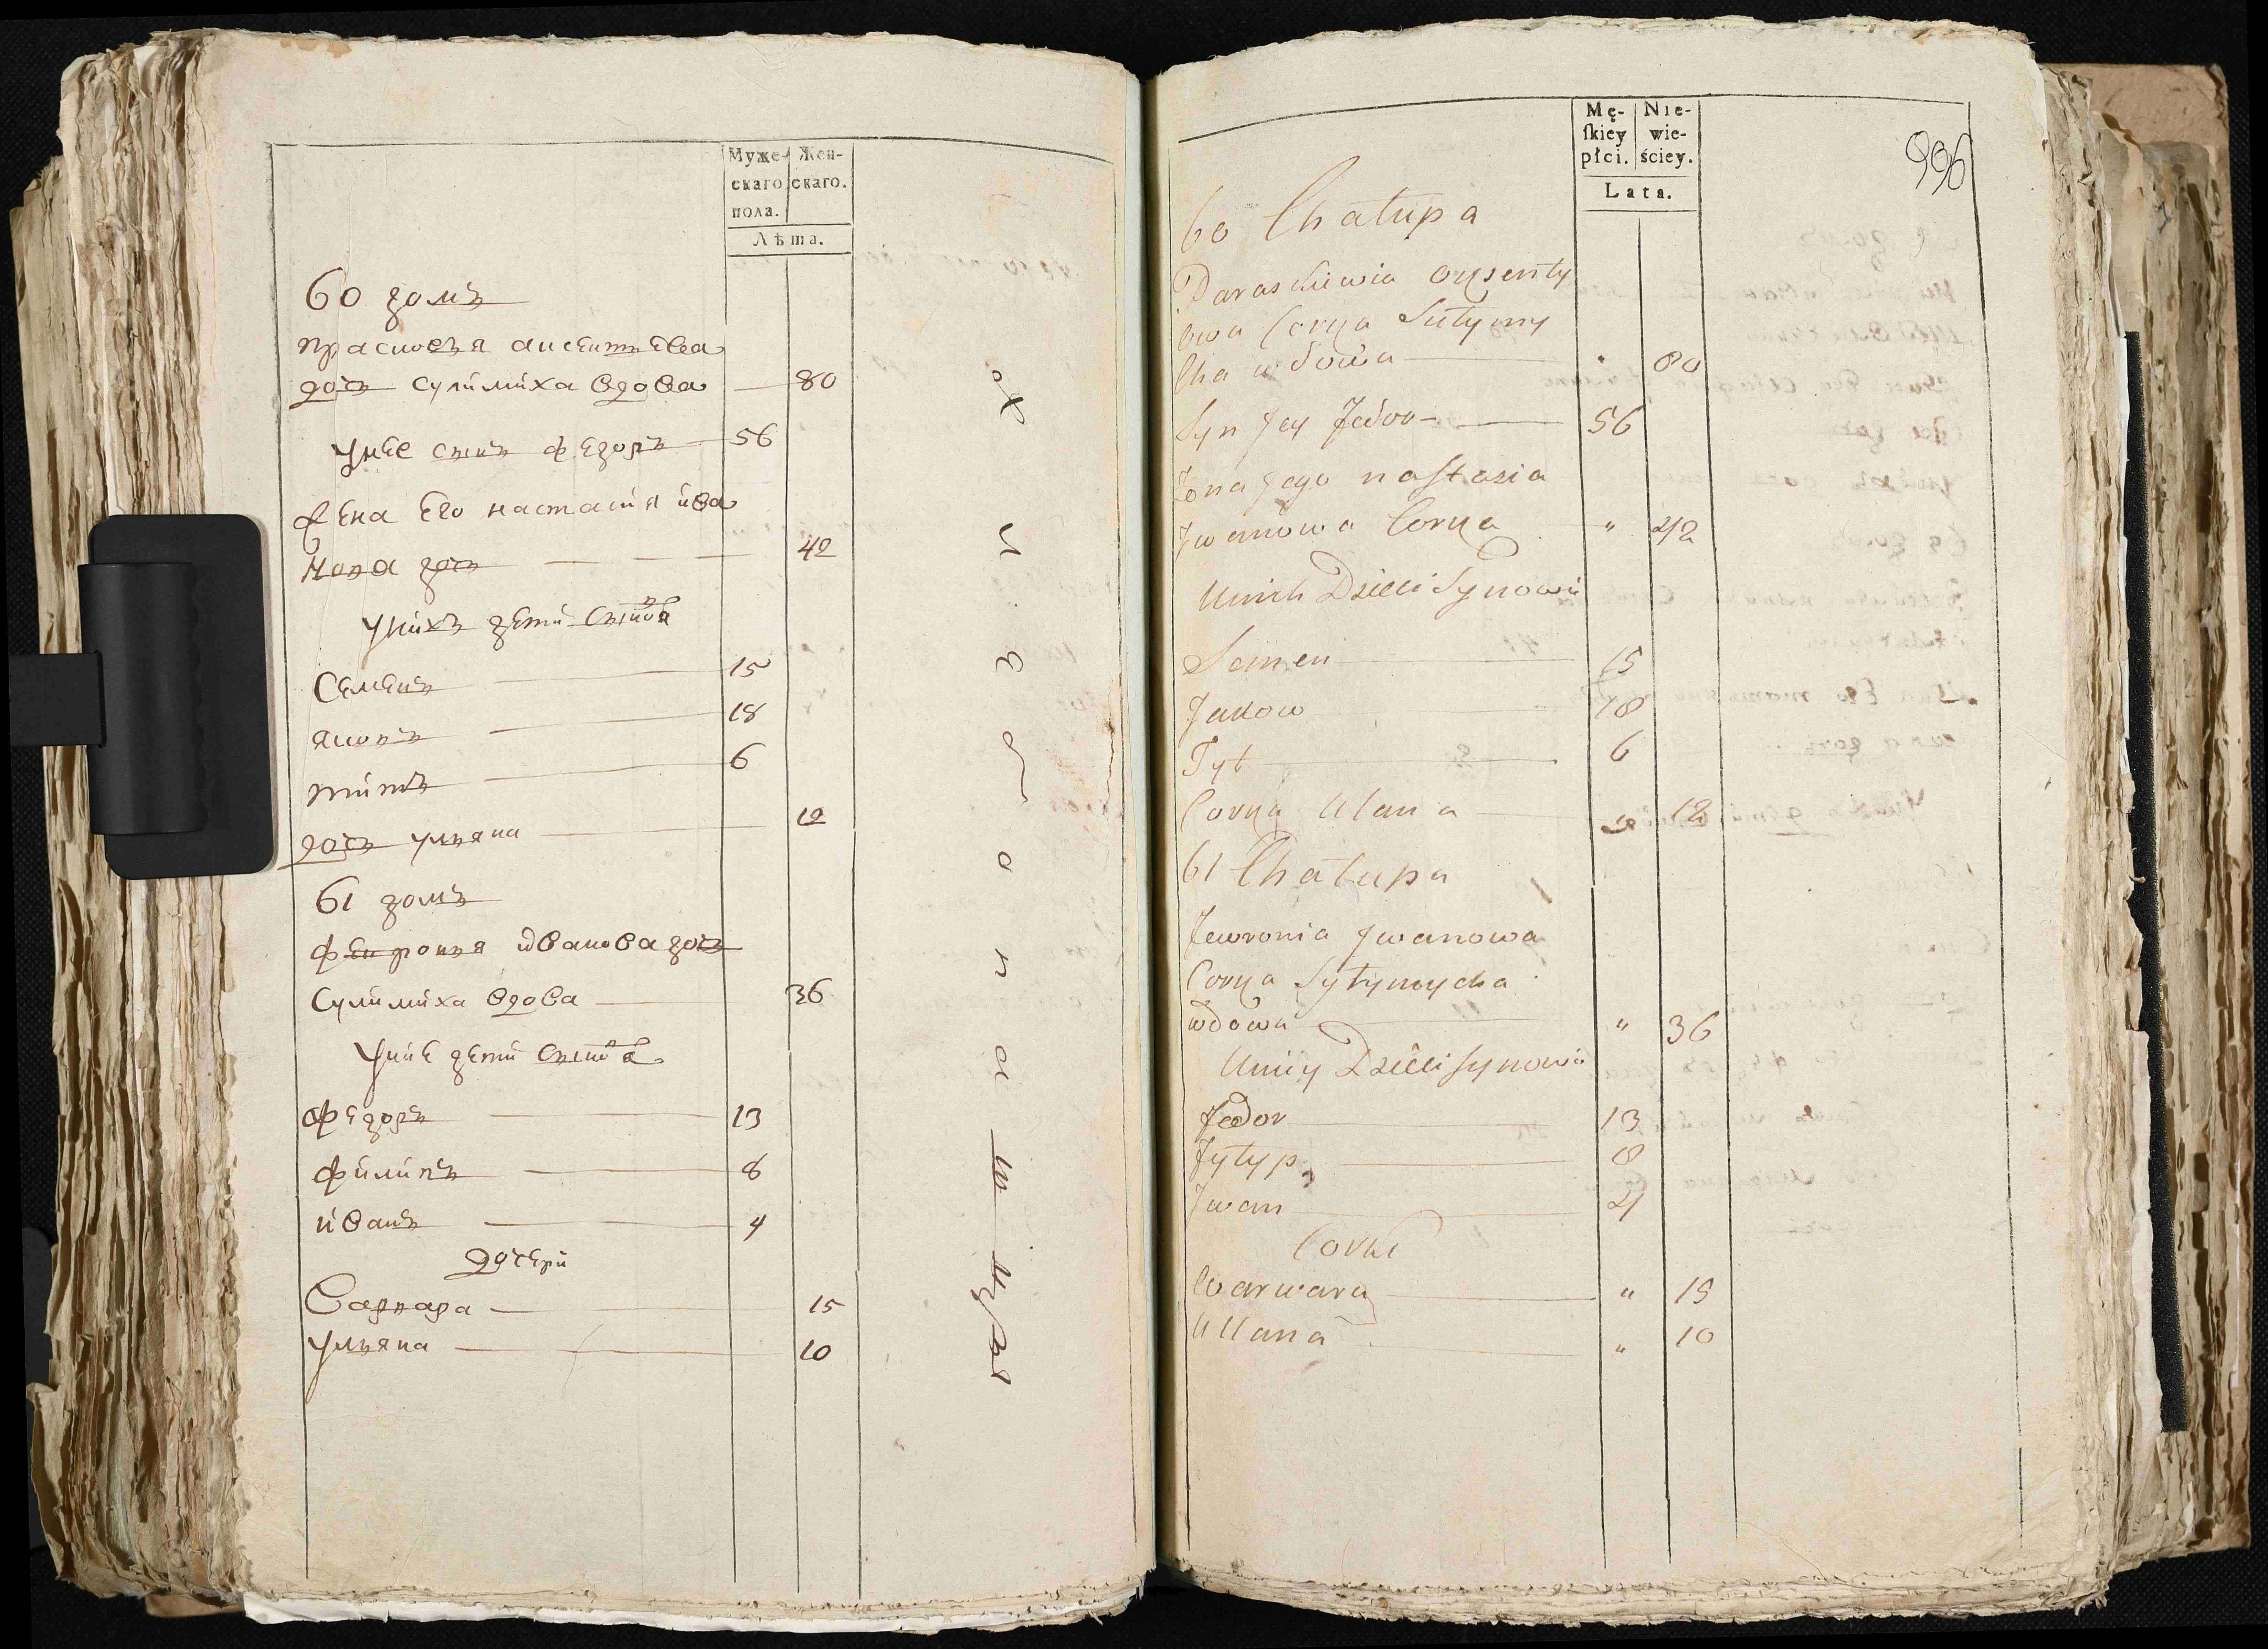 Муже- Жен-
скаго скаго.
пола.
Лѣта.
60 домъ
прасковья аксентьева
дочь сулимиха вдова 80
у нее сынъ федоръ 56
жена его настасия ива
нова дочь 42
у нихъ дети сынова
Семенъ 15
яковъ 18
титъ 6
дочь ульяна 12
61 домъ
февронья иванова дочь
сулимиха вдова 36
у ние дети сынова
федоръ 13
филипъ 8
иванъ 4
дочери
варвара 15
ульяна 10
Mę- Nie-
ſkiey wie-
płci. ściey.
Lata.
996
60 Chałupa
Paraskiewia oxsenty
owa Corka Sułymy
cha wdowa " 80
Syn Jey Fedor 56
Żona Jego nastasia
Jwanowa Corka " 42
U nich Dzieci Synowie
Semen 15
Jakow 18
Tyt 6
Corka Ulana " 12
61 Chałupa
Fewronia Jwanowa
Corka Sułymycha
wdowa " 36
U niey Dzieci synowie
Fedor 13
Fyłyp 8
Jwan 4
Corki
Warwara " 15
Ulana " 10